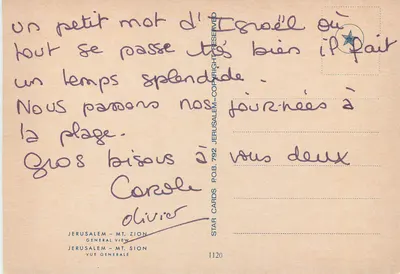 un petit mot d'Israël où
tout se passe très bien il fait
un temps splendide.
Nous passons nos journées à
la plage.
Gros bisous à vous deux
Carole
Olivier
JERUSALEM – MT. ZION
GENERAL VIEW
JERUSALEM – MT. SION
VUE GENERALE
STAR CARDS P.O.B. 792 JERUSALEM–COPYRIGHT RESERVED
1120